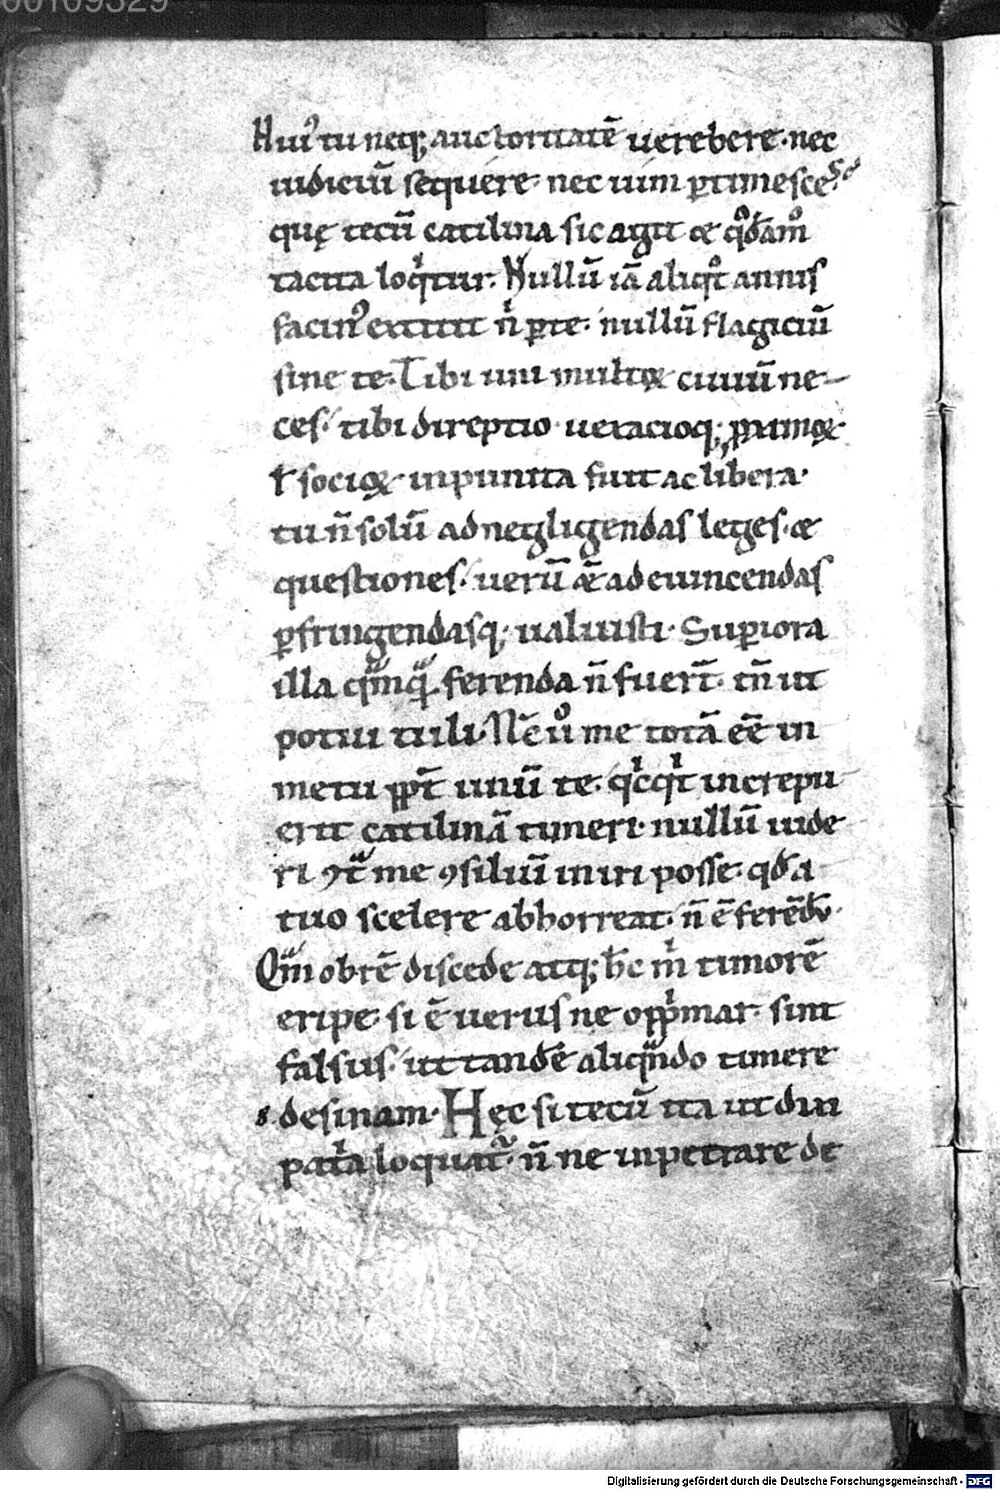 00109329
Hui᷒ tu neq; auctoritatē uerebere· nec
iudiciū sequere· nec uim ꝑtimesces·
quę tecū catilina sic agit & qͦdāmͦ
tacita loqͥtur· Nullū iā aliqͦt annis
facin᷒ extitit nͥ ꝑ te· nullū flagiciū
sine te· Tibi uni multoꝝ ciuiū ne-
ces· tibi direptio uexacioq; ꝓximoꝝ
ł socioꝝ inpunita fuit ac libera·
tu n̄ solū ad negligendas leges· &
questiones· uerū &̄ ad euincendas
ꝑfringendasq; ualuisti· Suꝑiora
illa qͣmqͣ ferenda n̄ fuert̄· tn̄ ut
potui tuli· Nc̄ uͦ me totā eē in
metu ꝓpt̄ unū te· qͥcqͥt increpu
erit catilinā timeri· nullū uide
ri ꝯtͣ me ꝯsiliū iniri posse· qđ a
tuo scelere abhorreat· n̄ ē ferēdū·
Qͣm obrē discede atq; hc̄ mͥ timorē
eripe· si ē uerus ne opp̄mar· sint
falsus· ut tandē aliqͣndo timere
desinam· Hęc si tecū ita ut dixi
patͥa loquat᷑· n̄ne inpetrare de
Digitalisierung gefördert durch die Deutsche Forschungsgemeinschaft - DFG